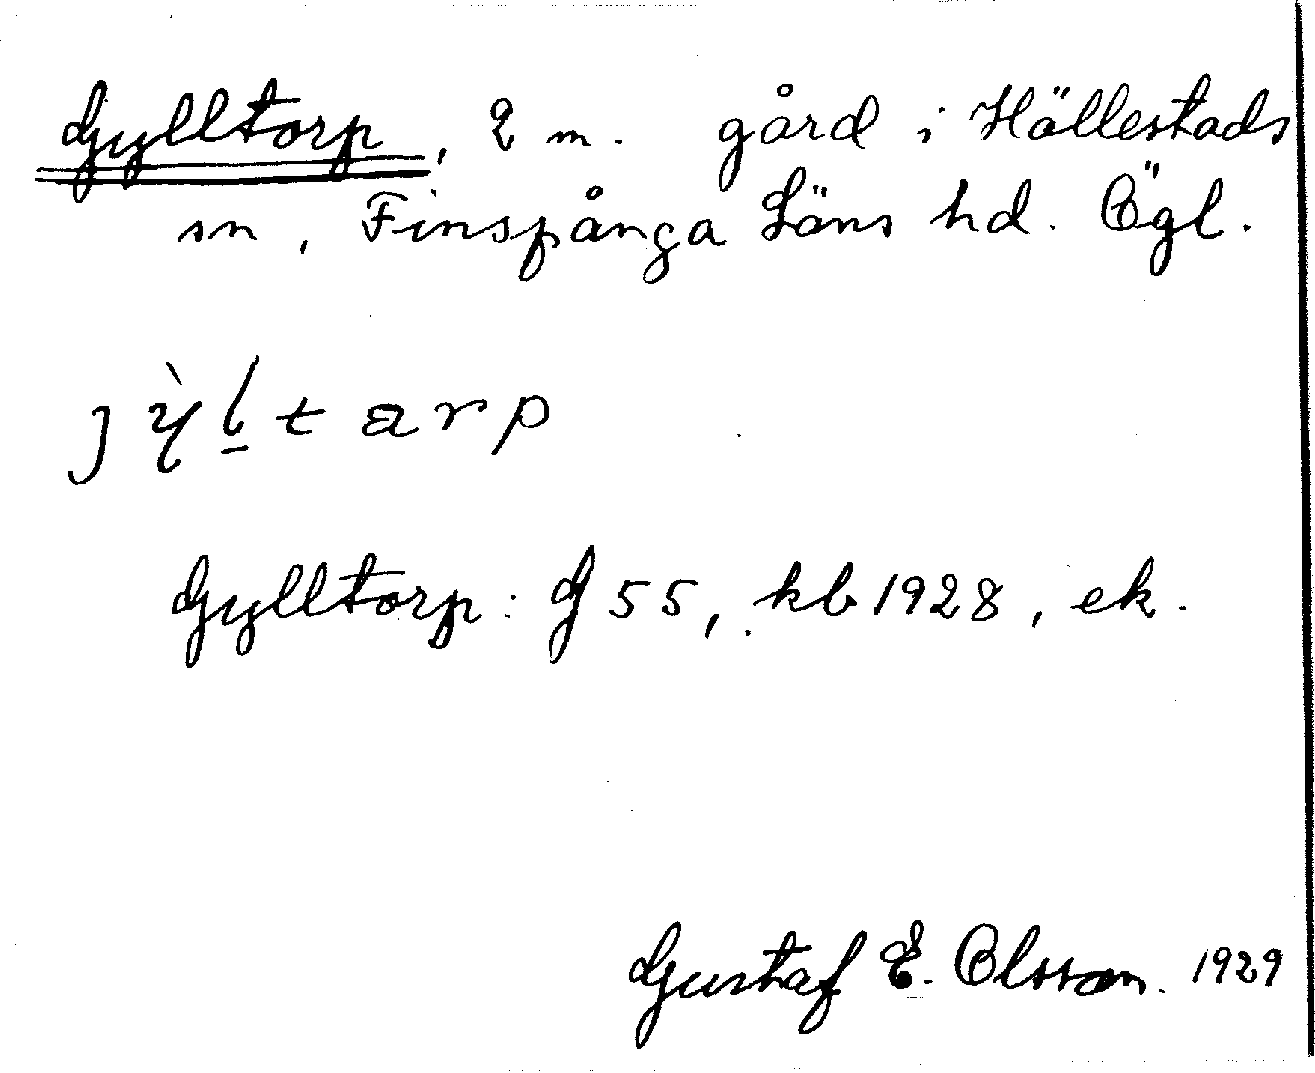 Gylltorp, 2 m. gård i Hällestads
sn, Finspånga Läns hd. Ögl.
jỳl̠tarp
Gylltorp: J 55, kb 1928, ek.
Gustaf E. Olsson. 1929